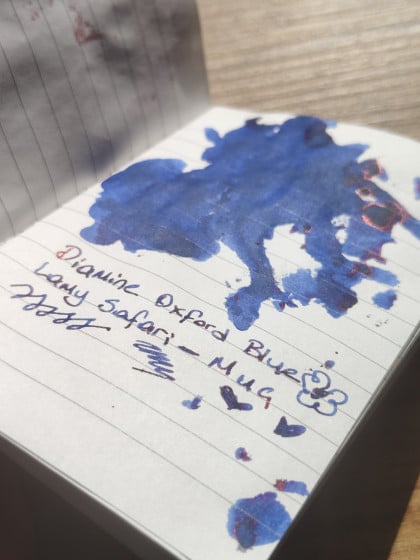 Diamine Oxford Blue
Lamy Safari - Mug